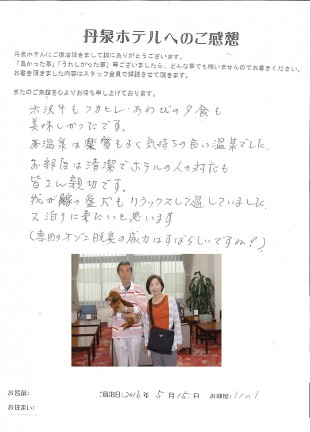 丹泉ホテルへのご感想
丹泉ホテルにご宿泊頂きまして誠にありがとうございます。
「良かった事」「うれしかった事」等ございましたら、どんな事でも構いませんのでお書きください。
お書き頂きました内容はスタッフ全員で拝読させて頂きます。
またのご来館を心よりお待ち申し上げております。
米沢牛もフカヒレ・あわびの夕食も
美味しかったです。
お温泉は泉質もよく気持ちの良い温泉でした。
お部屋は清潔でホテルの人の対応も
皆さん親切です。
我が家の愛犬もリラックスして過していました
又泊りに来たいと思います
(専用のオゾン脱臭の威力はすばらしいですね?)
お名前:
ご宿泊日:2016年 5月 15日 お部屋:
お住まい: